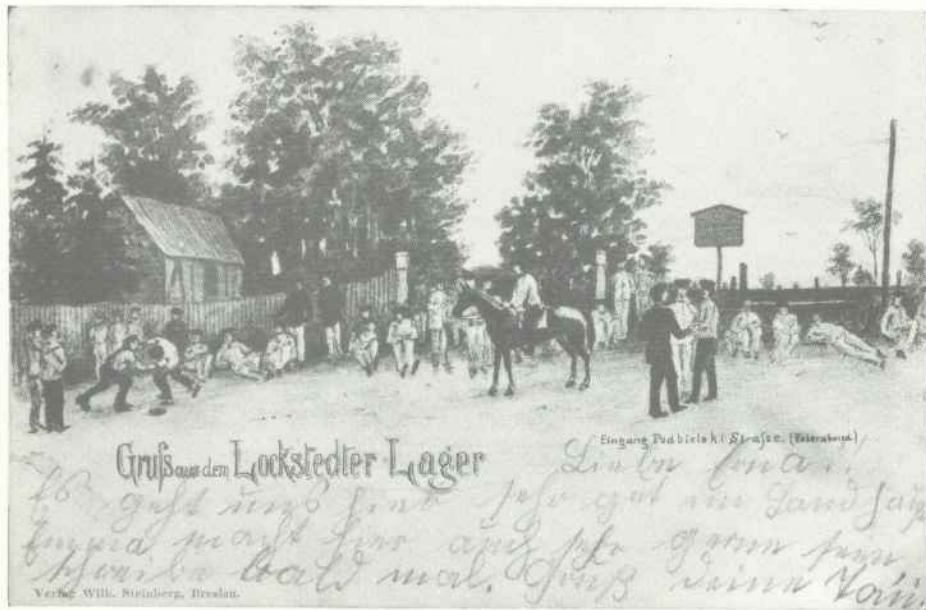 Gruß aus dem Lockstedter Lager
Eingang Podbielski Strasse. (Feierabend)
Liebe
Es geht uns hier sehr gut ein Land
Emma macht hier auch sehr gerne sein
schreibe bald mal. Gruß deine
Verlag Wilh. Steinberg, Breslau.